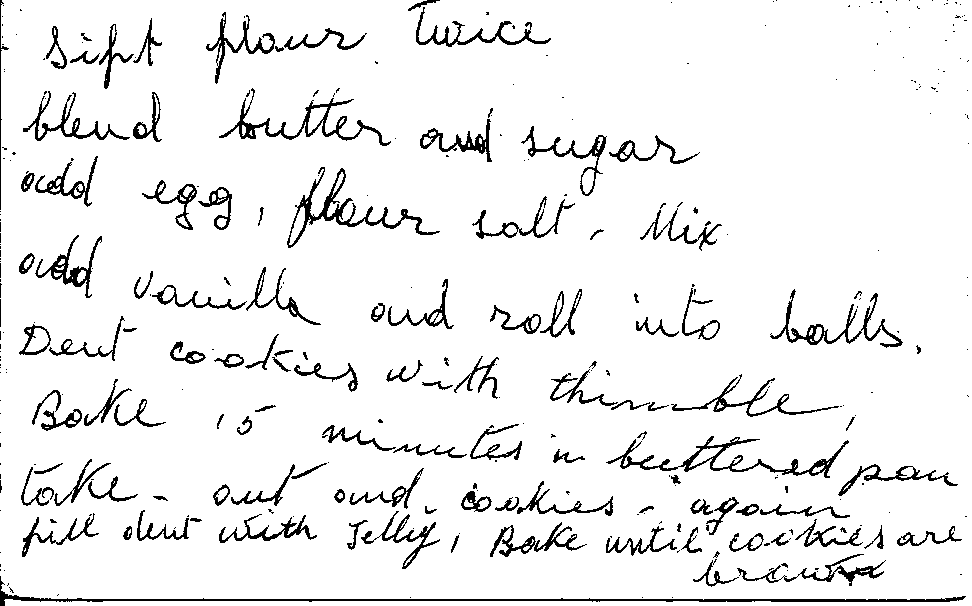 Sift flour Twice
blend butter and sugar
add egg, flour salt - Mix
add vanilla and roll into balls.
Dent cookies with thimble,
Bake 15 minutes in buttered pan
take - out and - cookies - again
fill dent with Jelly, Bake until cookies are
brown